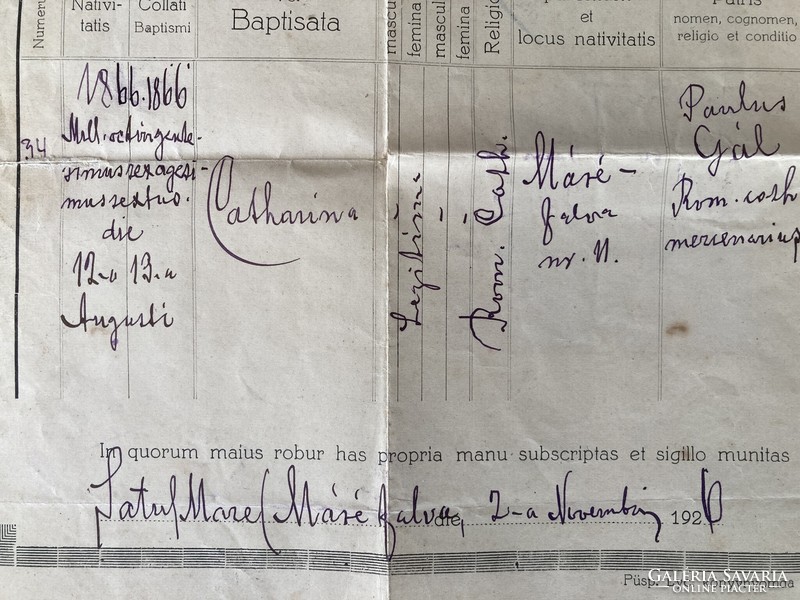 Numeru
Nativi-
tatis
Collati
Baptismi
Baptisata
mascu
femina
mascul
femina
Religio
et
locus nativitatis
nomen, cognomen,
religio et conditio
34.
1866. 1866
Mill. octingente-
simussexagesi-
mussextus.
die
12-a 13-a
Augusti
Catharina
Legitima
Rom. Cath.
Máré-
falva
nr. 11.
Paulus
Gál
Rom. cath
mercenarius
In quorum maius robur has propria manu subscriptas et sigillo munitas
Satul Mare (Máréfalva, die, 2-a Novembris 1926
Püsp.
GALÉRIA SAVARIA
ONLINE PIACTÉR